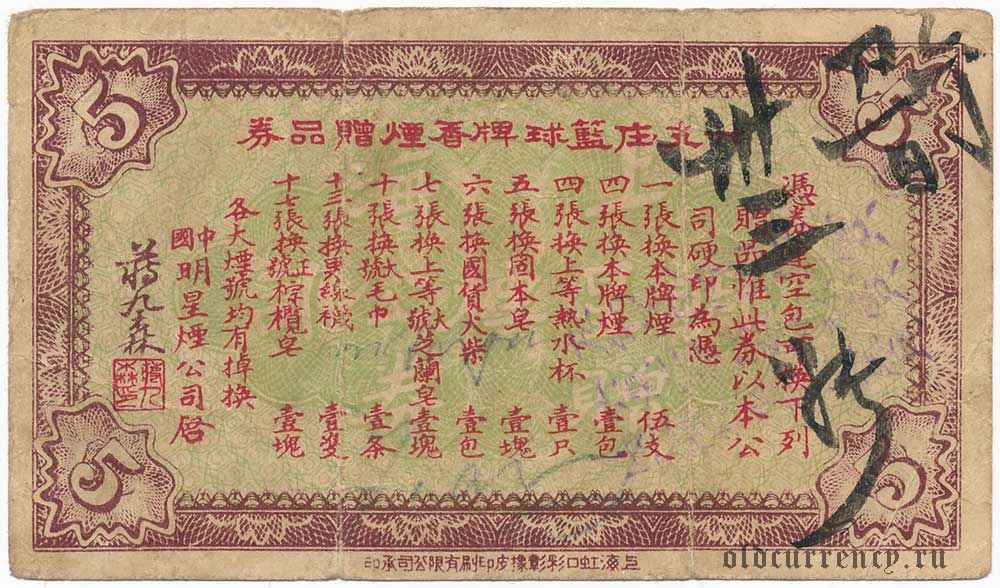 支庄籃球牌香煙贈品券
憑券連空包可換下列
贈品惟此券以本公
司硬印為憑
一張換本牌煙 伍支
四張換本牌煙 壹包
四張換上等熱水杯 壹只
五張換固本皂 壹塊
六張換國貨火柴 壹包
七張換上等大號芝蘭皂 壹塊
十張換大號毛巾 壹条
十三張換真線襪 壹雙
十七張換正號棕欖皂 壹塊
各大煙號均有掉換
中國明星煙公司啓
蔣九森
卅三
5
5
5
5
上海虹口彩彰橡皮印刷有限公司承印
oldcurrency.ru